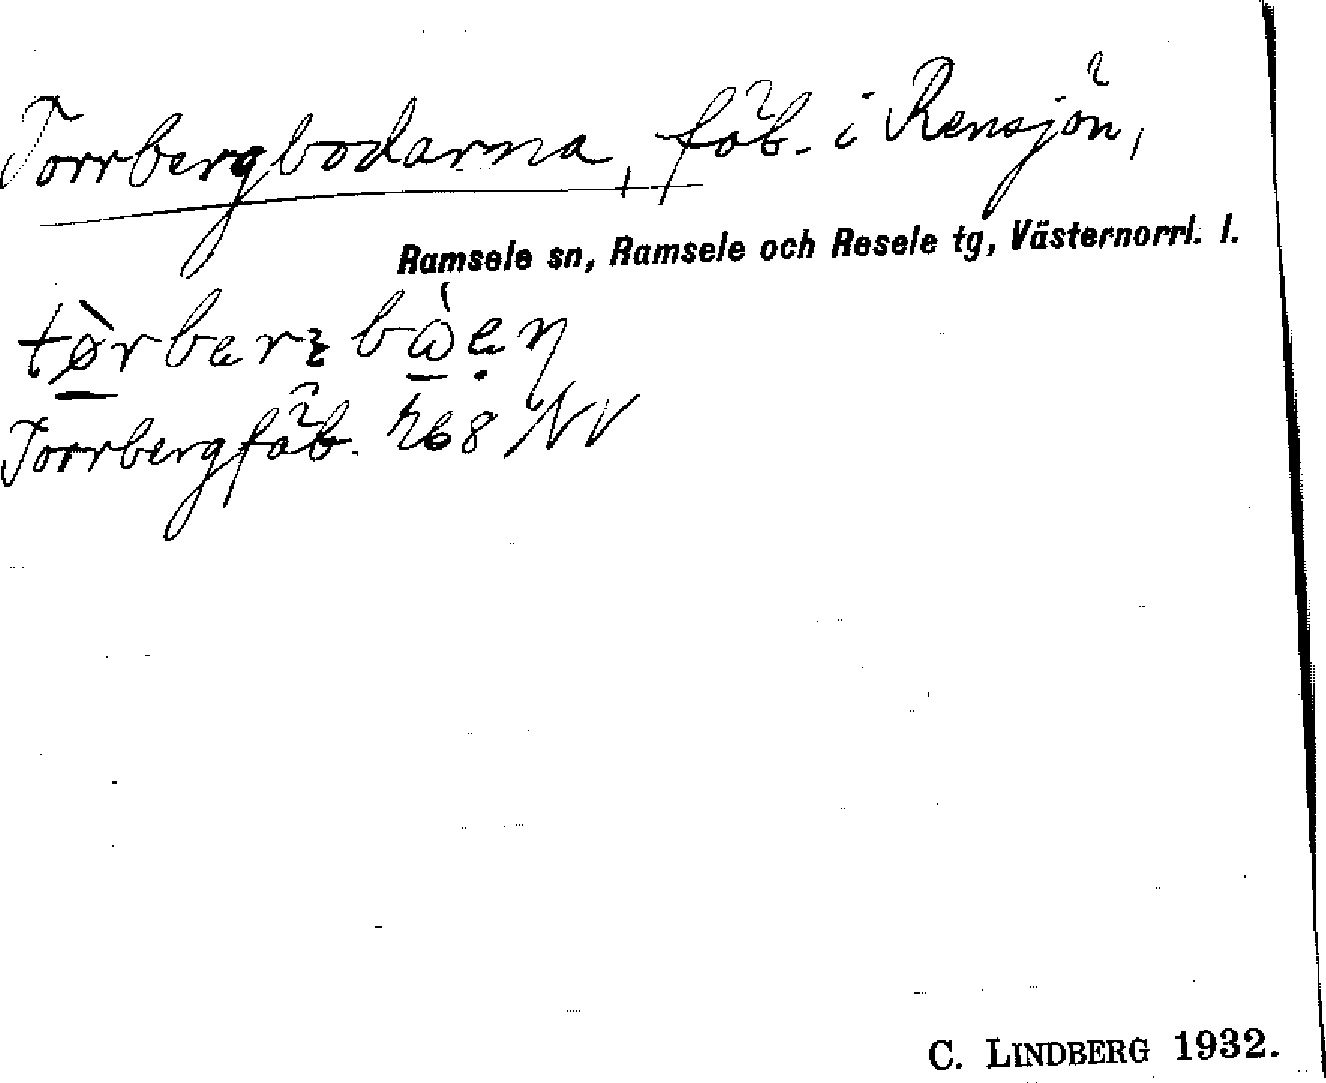 Torrbergbodarna, fäb. i Rensjön,
Ramsele sn, Ramsele och Resele tg, Västernorrl. l.
Torrbergfäb. h68 NV
C. LINDBERG 1932.